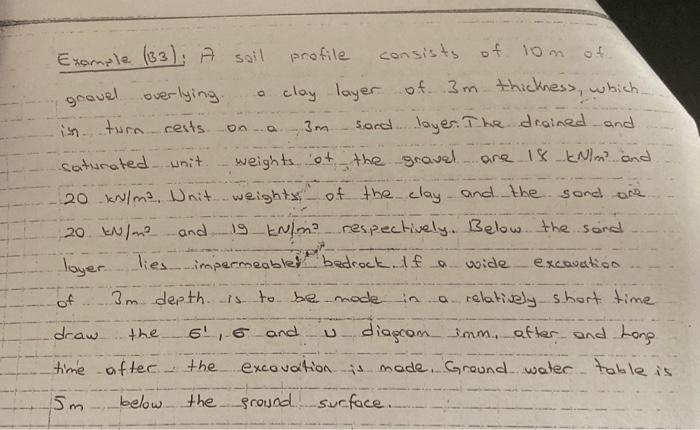 Example (B3); A soil profile consists of 10m of
gravel overlying a clay layer of 3m thickness, which
in turn rests on a 3m sand layer. The drained and
saturated unit weights of the gravel are 18 kN/m³ and
20 kN/m³. Unit weights of the clay and the sand are
20 kN/m³ and 19 kN/m³ respectively. Below the sand
layer lies impermeable bedrock. If a wide excavation
of 3m depth is to be made in a relatively short time
draw the σ', σ and u diagram imm. after and long
time after the excavation is made. Ground water table is
5m below the ground surface.